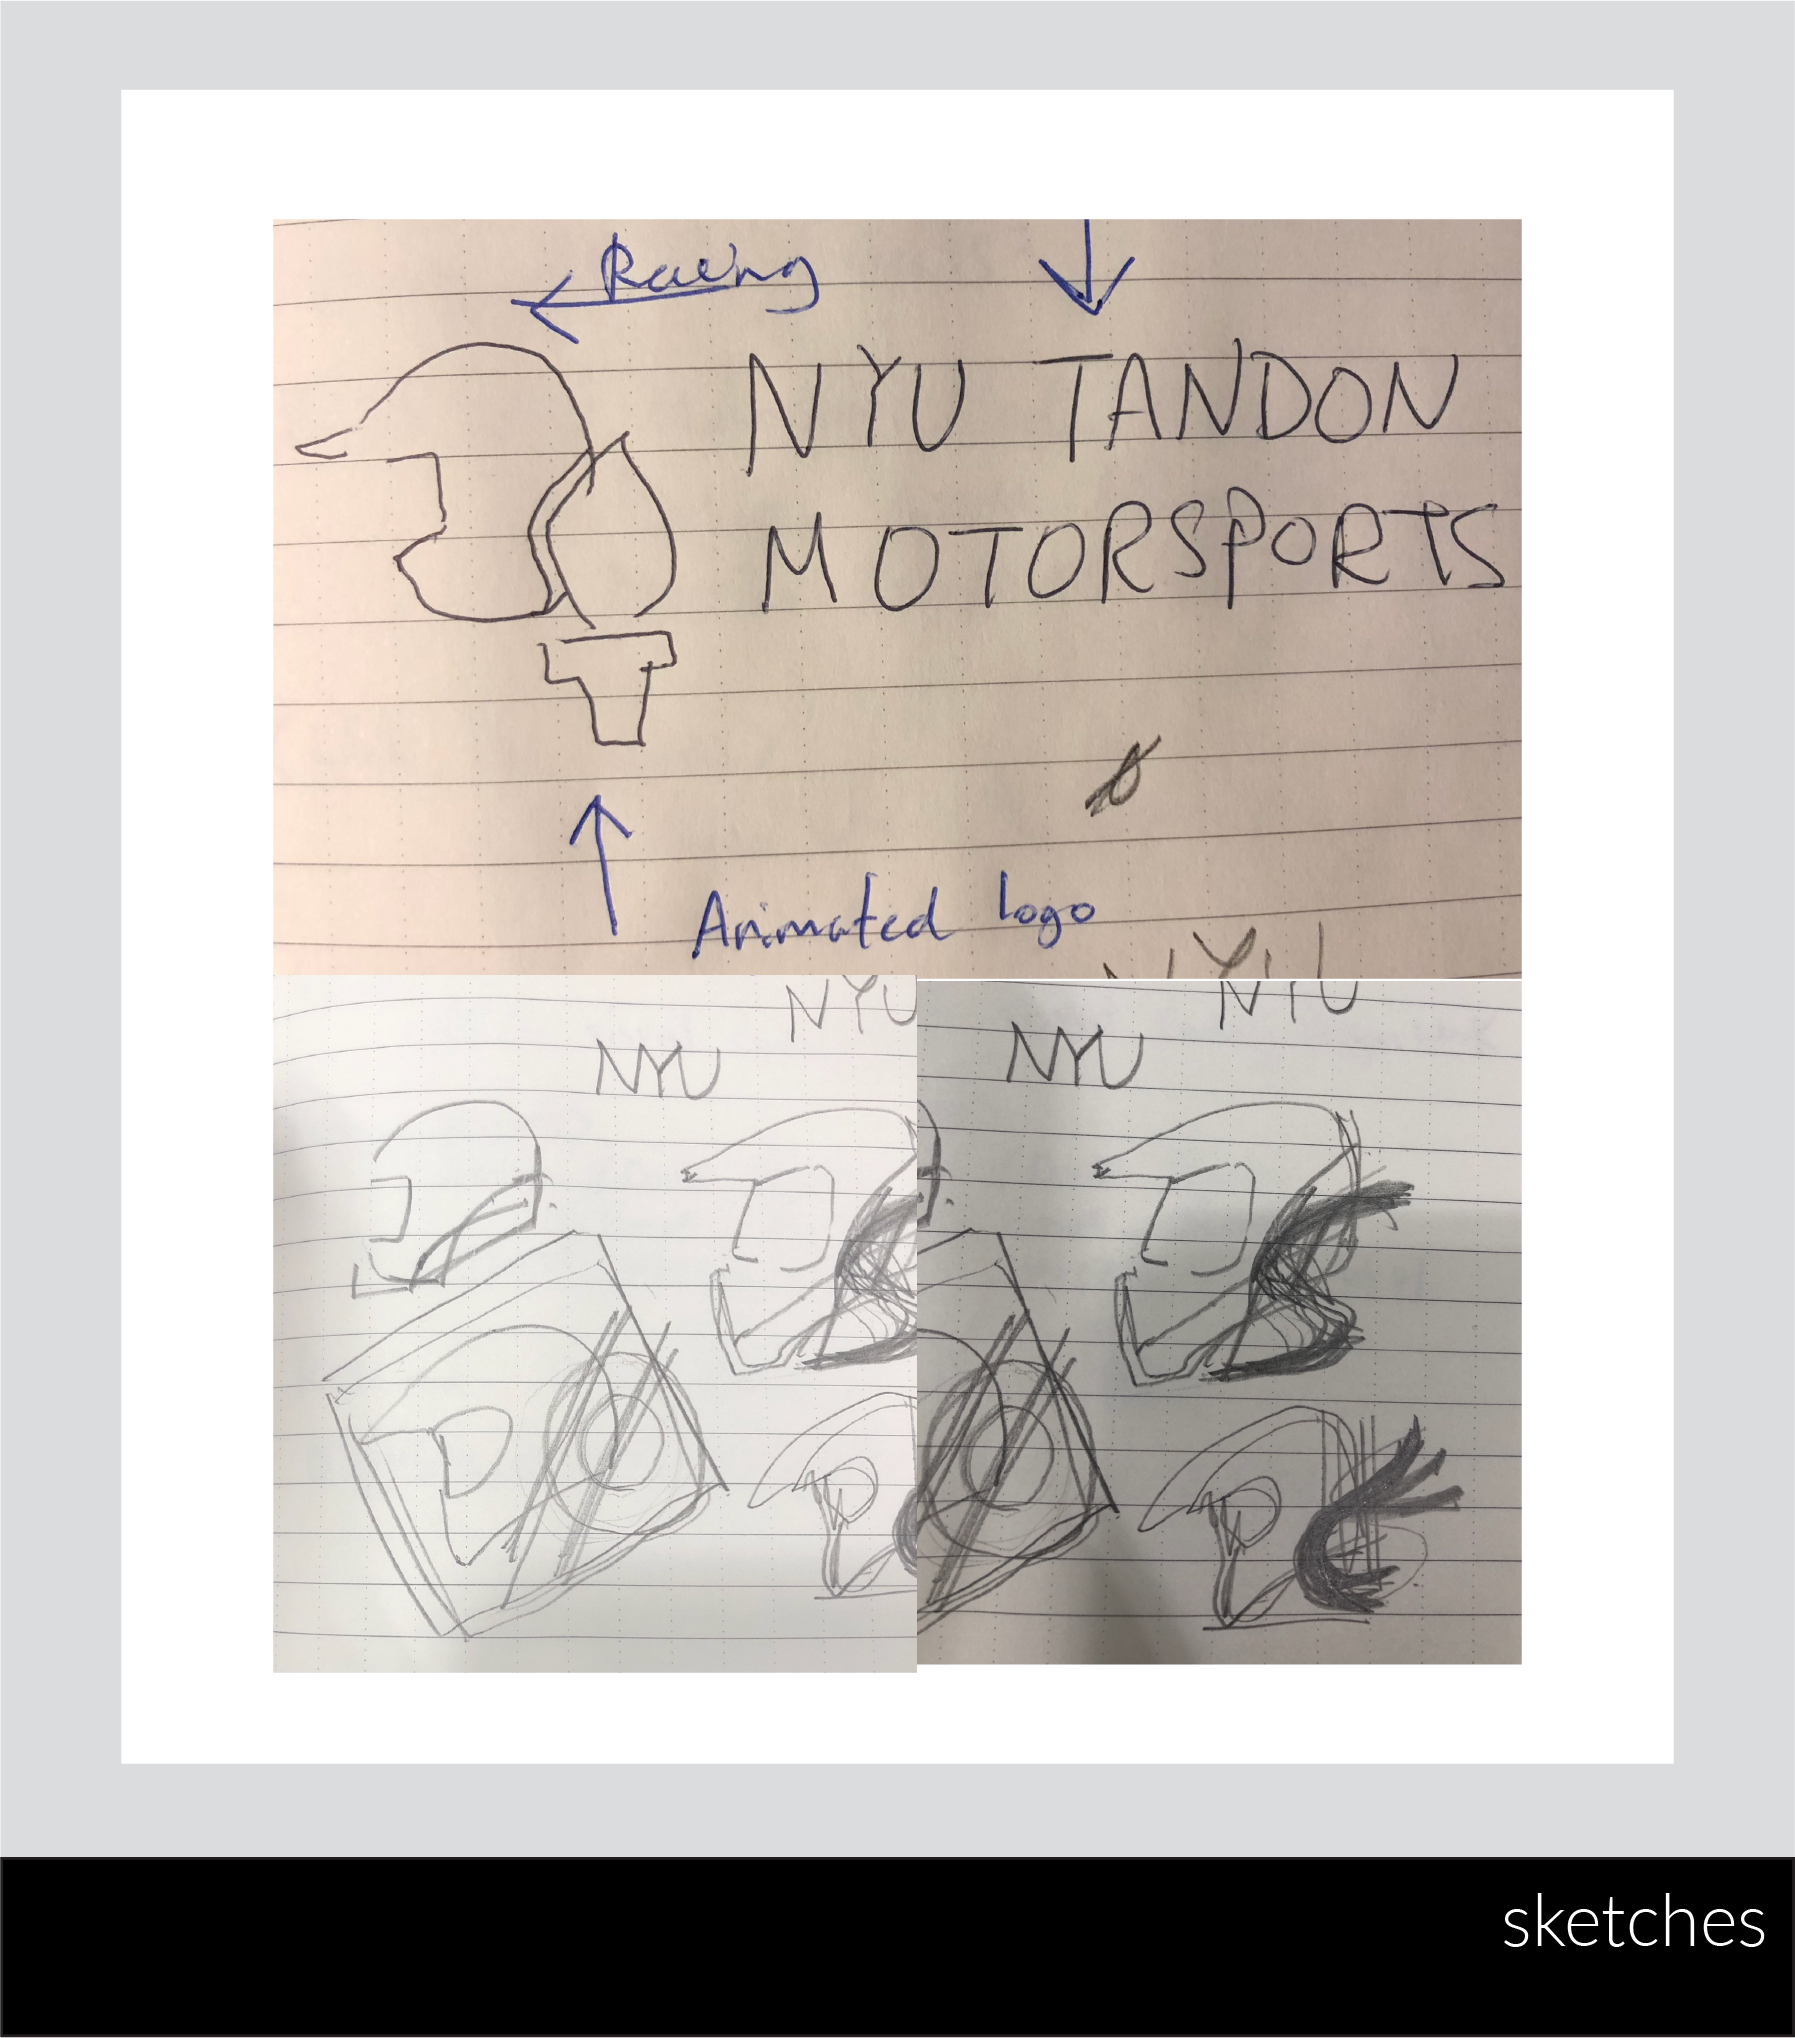 Racing
NYU TANDON
MOTORSPORTS
Animated logo
NYU
NYU
NYU
NYU
NYU
sketches